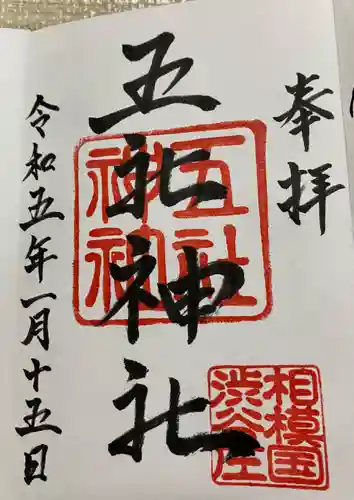 奉拝
五社神社
五社神社
相模国渋谷庄
令和五年一月十五日